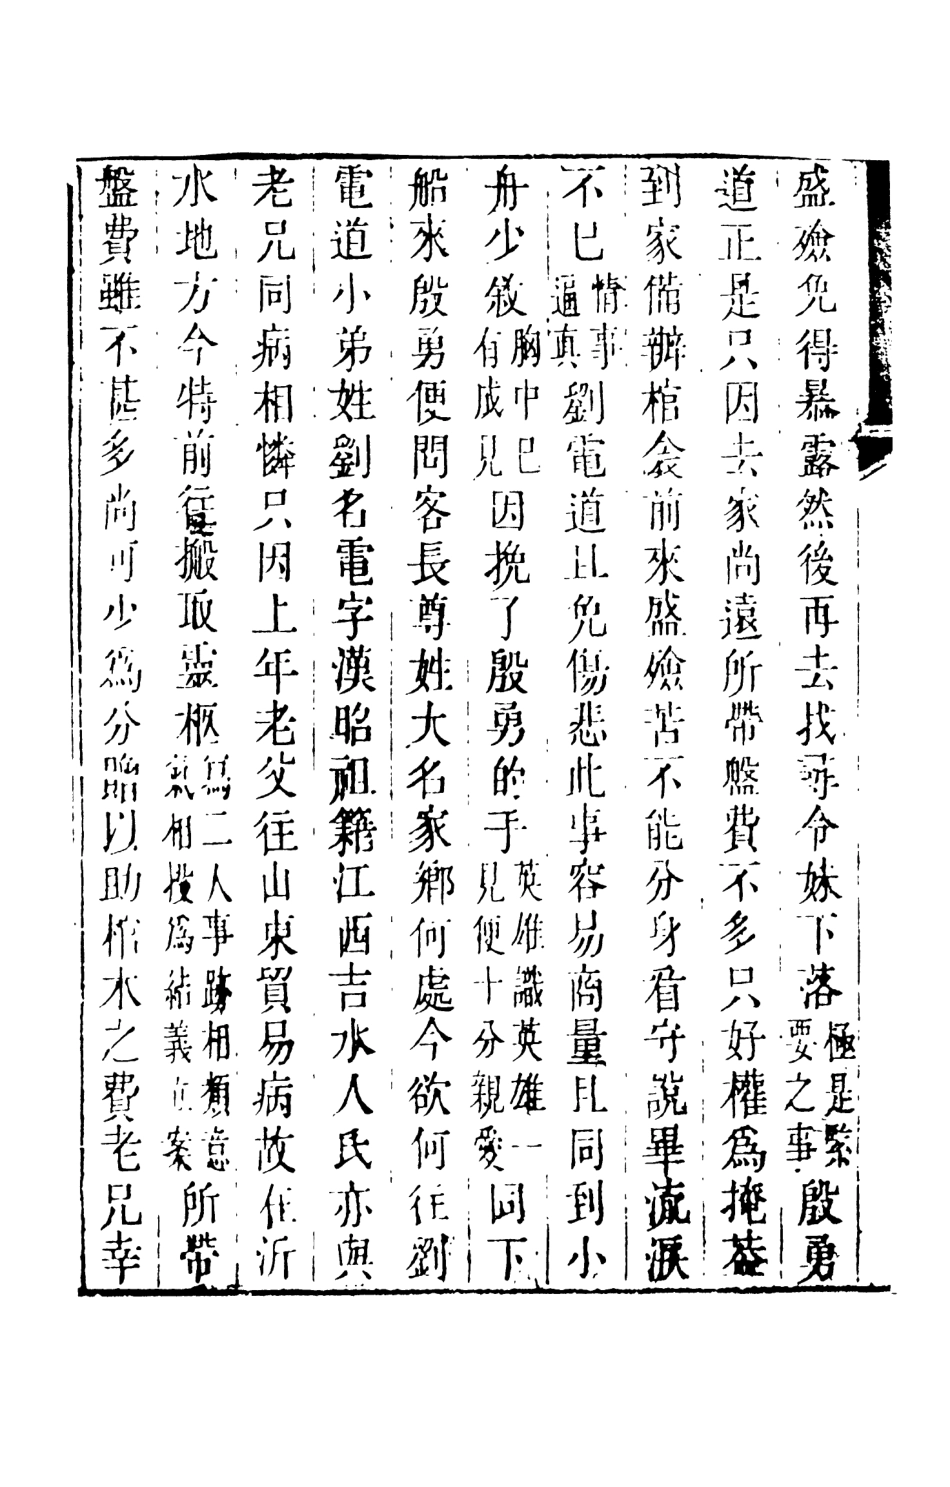 盛殮免得暴露然後再去找尋令妹下落極是緊要之事殷勇
道正是只因去家尚遠所帶盤費不多只好權為掩葢
到家俻辦棺衾前來盛殮苦不能分身看守說畢流淚
不已情事逼真劉電道且免傷悲此事容易商量且同到小
舟少敘胸中已有成見因挽了殷勇的手英雄識英雄一見便十分親愛同下
船來殷勇便問客長尊姓大名家鄉何處今欲何往劉
電道小弟姓劉名電字漢昭祖籍江西吉水人氏亦與
老兄同病相憐只因上年老父往山東貿易病故在沂
水地方今特前往搬取靈柩為二人事跡相類意氣相投為結義立案所帶
盤費雖不甚多尚可少為分貽以助棺木之費老兄幸